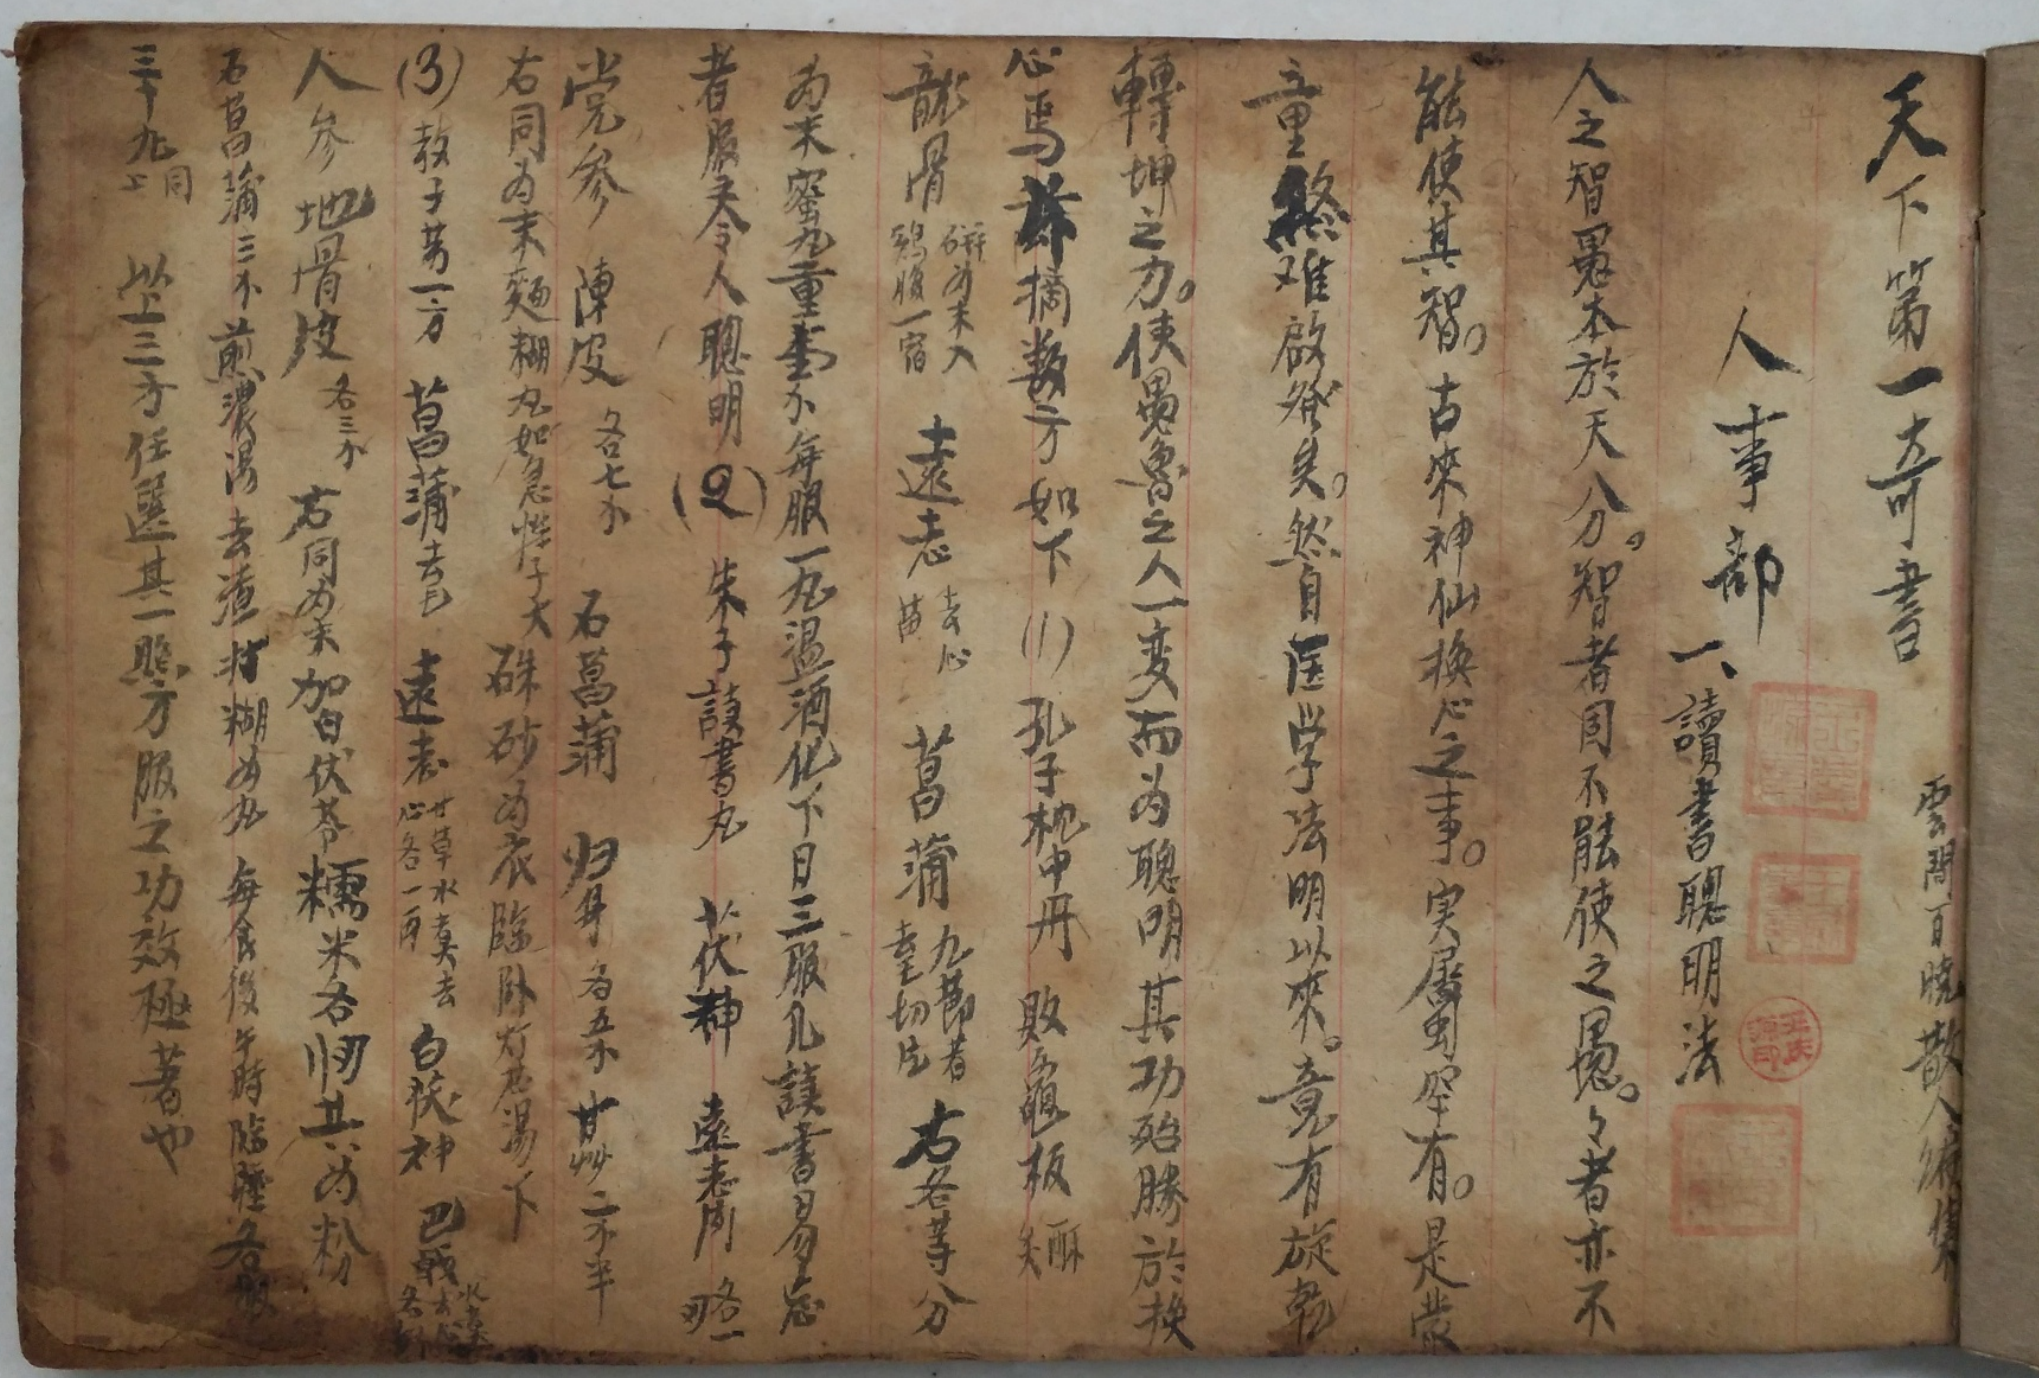 天下第一奇書
雲間百曉散人編集
人事部
一、讀書聰明法
人之智愚本於天分。智者固不能使之愚。々者亦不
能使其智。古來神仙換心之事。实屬罕有。是蒙
童終难啟發矣。然自医学法明以來。竟有旋乾
轉坤之力。使愚魯之人一变而为聰明其功殆勝於换
心焉茲摘数方如下(1)孔子枕中丹 敗龜板 酥炙
龍骨 研为末入鷄腹一宿 遠志 去心苗 菖蒲 九節者去毛切片 右各等分
为末蜜丸重壹分每服一丸温酒化下日三服凡讀書易忘
者服之令人聰明(2)朱子讀書丸 茯神 遠志肉 各一
党参 陳皮 各七分 石菖蒲 归身 各五分 甘艸二分半
右同为末麵糊丸如急性子大硃砂为衣臨卧灯芯湯下
(3)教子萬一方 菖蒲去毛 遠志 甘草水煑去心各一両 白茯神 巴戟 水煑去心
人参 地骨皮 各三分 右同为末加白伏苓糯米各 共为粉
石菖蒲三分煎濃湯去渣 糊为丸每食後午時臨睡各服
三十九 同上 以上三方任選其一照方服之功效極著也